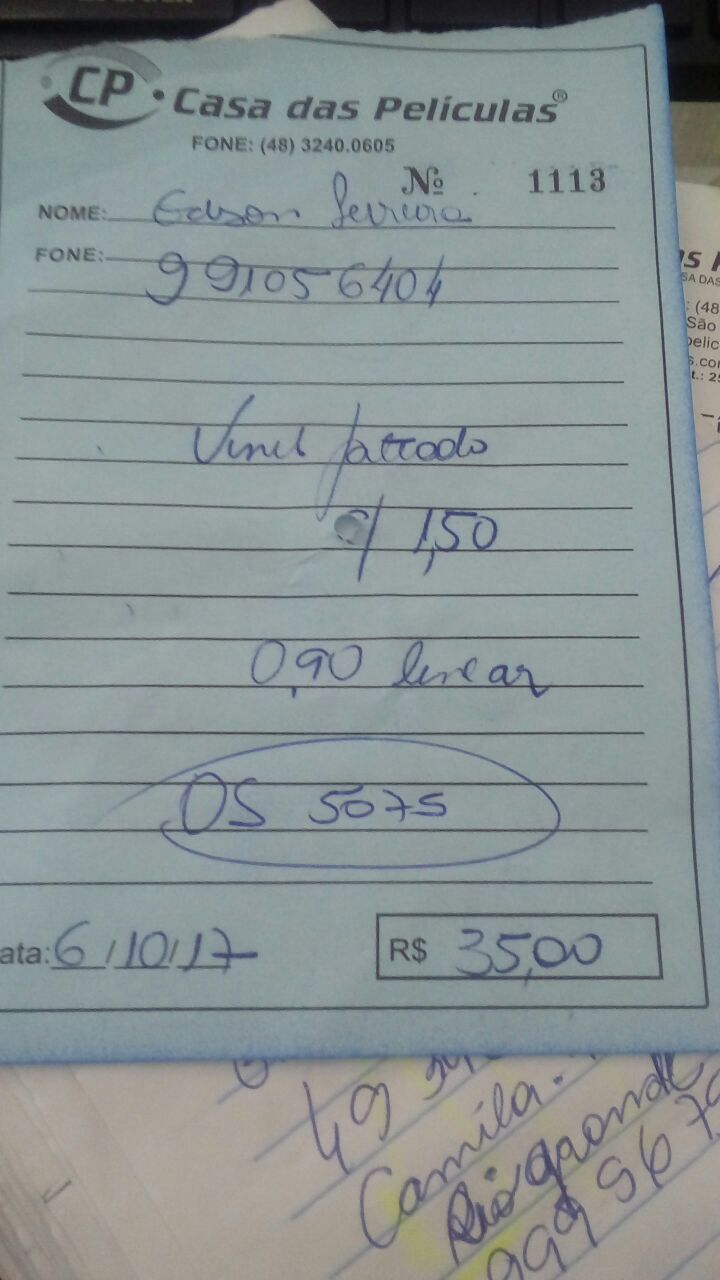 CP • Casa das Películas®
FONE: (48) 3240.0605
Nº 1113
NOME: Edson Ferreira
FONE:
991056404
Vinil jateado
c/ 1,50
0,90 linear
OS 5075
ata: 6/10/17 R$ 35,00
SA DAS
: (48
São
pelic
s.co
t.: 2
49
Camila.
Rio grande
999 567